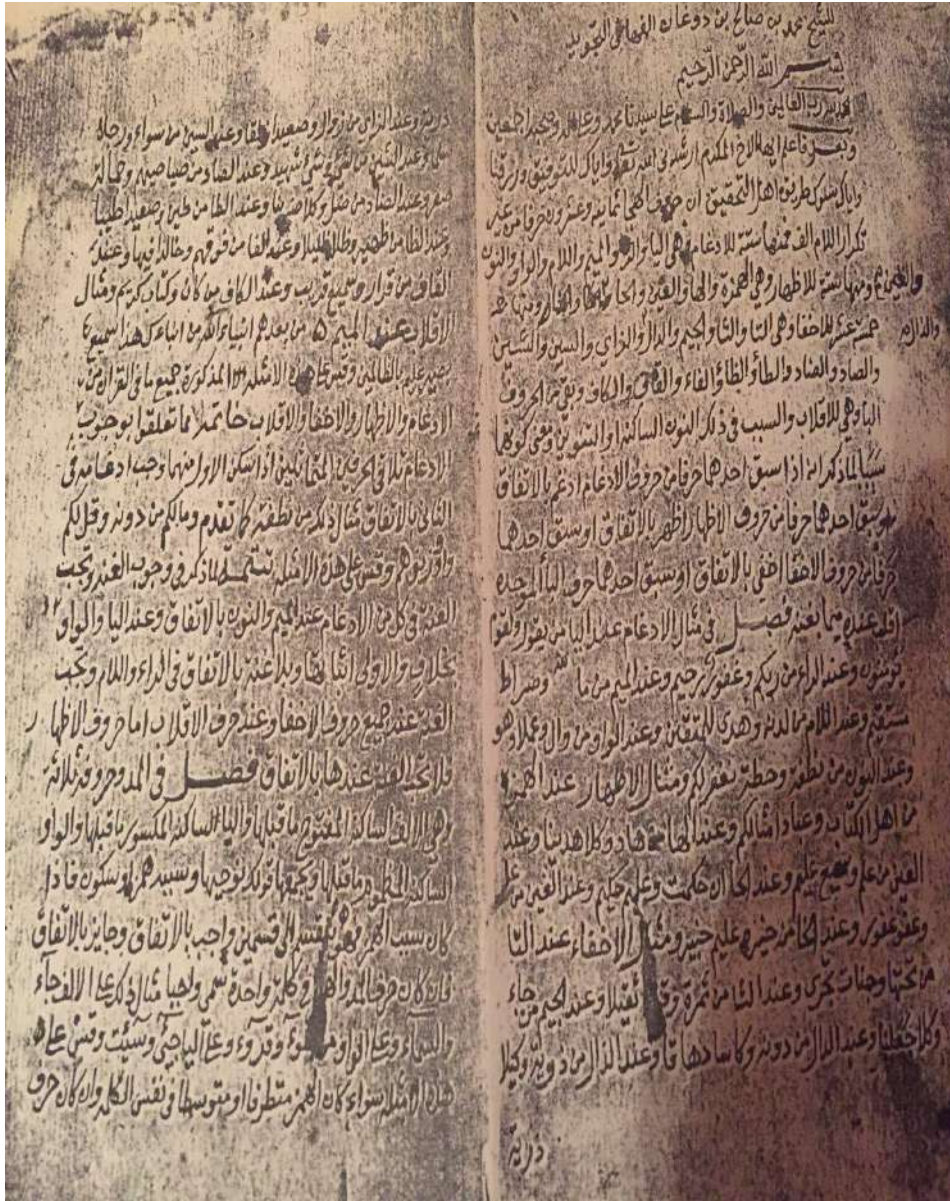 للشيخ محمد بن صالح بن دوغان في التجويد
بسم الله الرحمن الرحيم
الحمد لله رب العالمين والصلاة والسلام على سيدنا محمد وعلى اله وصحبه اجمعين
وبعد فاعلم ايها الاخ المكرم ارشدني الله تعالى واياك للتوفيق ورزقنا
واياك سلوك طريق اهل التحقيق ان حروف الهجا ثمانية وعشرون حرفا من غير
تكرار اللام الف فمنها ستة للادغام وهي اليا والرا والميم واللام والواو والنون
ومنها ستة للاظهار وهي الهمزة والها والعين والحا والغين والخا ومنها
خمسة عشر للاخفا وهي التا والثا والجيم والدال والزاي والسين والشين والذال
والصاد والضاد والطا والظا والفاء والقاف والكاف وبقي من الحروف
البا وهي للاقلاب والسبب في ذلك النون الساكنة والتنوين ومعنى كونهما
سببا لما ذكر انه اذا سبق احدهما حرفا من حروف الادغام ادغم بالاتفاق
او سبق احدهما حرفا من حروف الاظهار اظهر بالاتفاق او سبق احدهما
حرفا من حروف الاخفا اخفي بالاتفاق او سبق احدهما حرف البا الموحدة
اقلب عنده ميما بغنة فصل في مثال الادغام عند اليا من يقول ولقوم
يؤمنون وعند الراء من ربكم وغفور رحيم وعند الميم من ما وصراط
مستقيم وعند اللام من لدنه وهدى للمتقين وعند الواو من وال وهو
وعند النون من نطفة وحطة نغفر لكم ومثال الاظهار عند الهمزة
من اهل الكتاب وعباد امثالكم وعند الها من هاد وكلا هدينا وعند
العين من علم وسميع عليم وعند الحا ان حكمت وعليم حكيم وعند الغين من غل
وعفو غفور وعند الخا من خير وعليم خبير ومثال الاخفاء عند التا
من تحتها وجنات تجري وعند الثا من ثمرة وقولا ثقيلا وعند الجيم من جاء
وعند الدال من دونه وكاسا دهاقا وعند الذال من ذريته وكيلا
ذرية
ذرية وعند الزاي من زوال وصعيدا زلقا وعند السين من سواء ورجلا
سلما وعند الشين من شيء وشيء شهيد وعند الصاد من صياصيهم وجمالة
صفر وعند الضاد من ضل وكلا ضربنا وعند الطا من طين وصعيدا طيبا
وعند الظا من ظهير وظلا ظليلا وعند الفا من فوقهم وخالدا فيها وعند
القاف من قرار وسميع قريب وعند الكاف من كان وكتاب كريم ومثال
الاقلاب عند الميم من بعدهم انبياء الله من انباء كهذا سميع
بصير عليم بالظالمين وقس على هذه الامثلة المذكورة جميع ما في القران من
الادغام والاظهار والاخفا والاقلاب خاتمة
الادغام تلاقي الحرفين المتماثلين اذا سكن الاول منهما وجب ادغامه في
الثاني بالاتفاق مثال ذلك من نطفة كما تقدم ومالكم من دونه وقل لكم
وقس على هذه الامثلة تتمة لما ذكر في وجوب الغنة وتجب
الغنة في كل من الادغام عند الميم والنون بالاتفاق وعند اليا والواو
بخلاف والاولى اثباتها وبلا غنة بالاتفاق في الراء واللام وتجب
الغنة عند جميع حروف الاخفا وعند حرف الاقلاب اما حروف الاظهار
فلا تجب الغنة عندها بالاتفاق فصل في المد وحروفه ثلاثة
وهي الالف الساكنة المفتوح ما قبلها والياء الساكنة المكسور ما قبلها والواو
الساكنة المضموم ما قبلها ويجمعها قولك نوحيها وسببه همز او سكون فاذا
كان سبب المد همز فهو ينقسم الى قسمين واجب بالاتفاق وجايز بالاتفاق
فان كان حرف المد والهمز في كلمة واحدة سمي واجبا مثال ذلك على الالف جآء
والسمآء وعلى الواو سوء وقروء وعلى اليا جيء وسيئت وقس على
هذه الامثلة سواء كان الهمز متطرفا او متوسطا في نفس الكلمة وان كان حرف